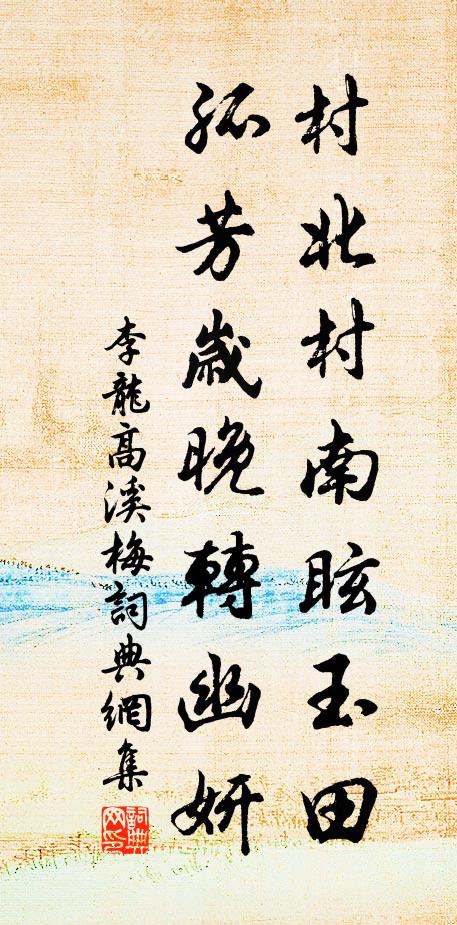 村北村南眩玉田
孤芳歲晚轉幽妍
李龍高溪梅詞典網集
詞典網印